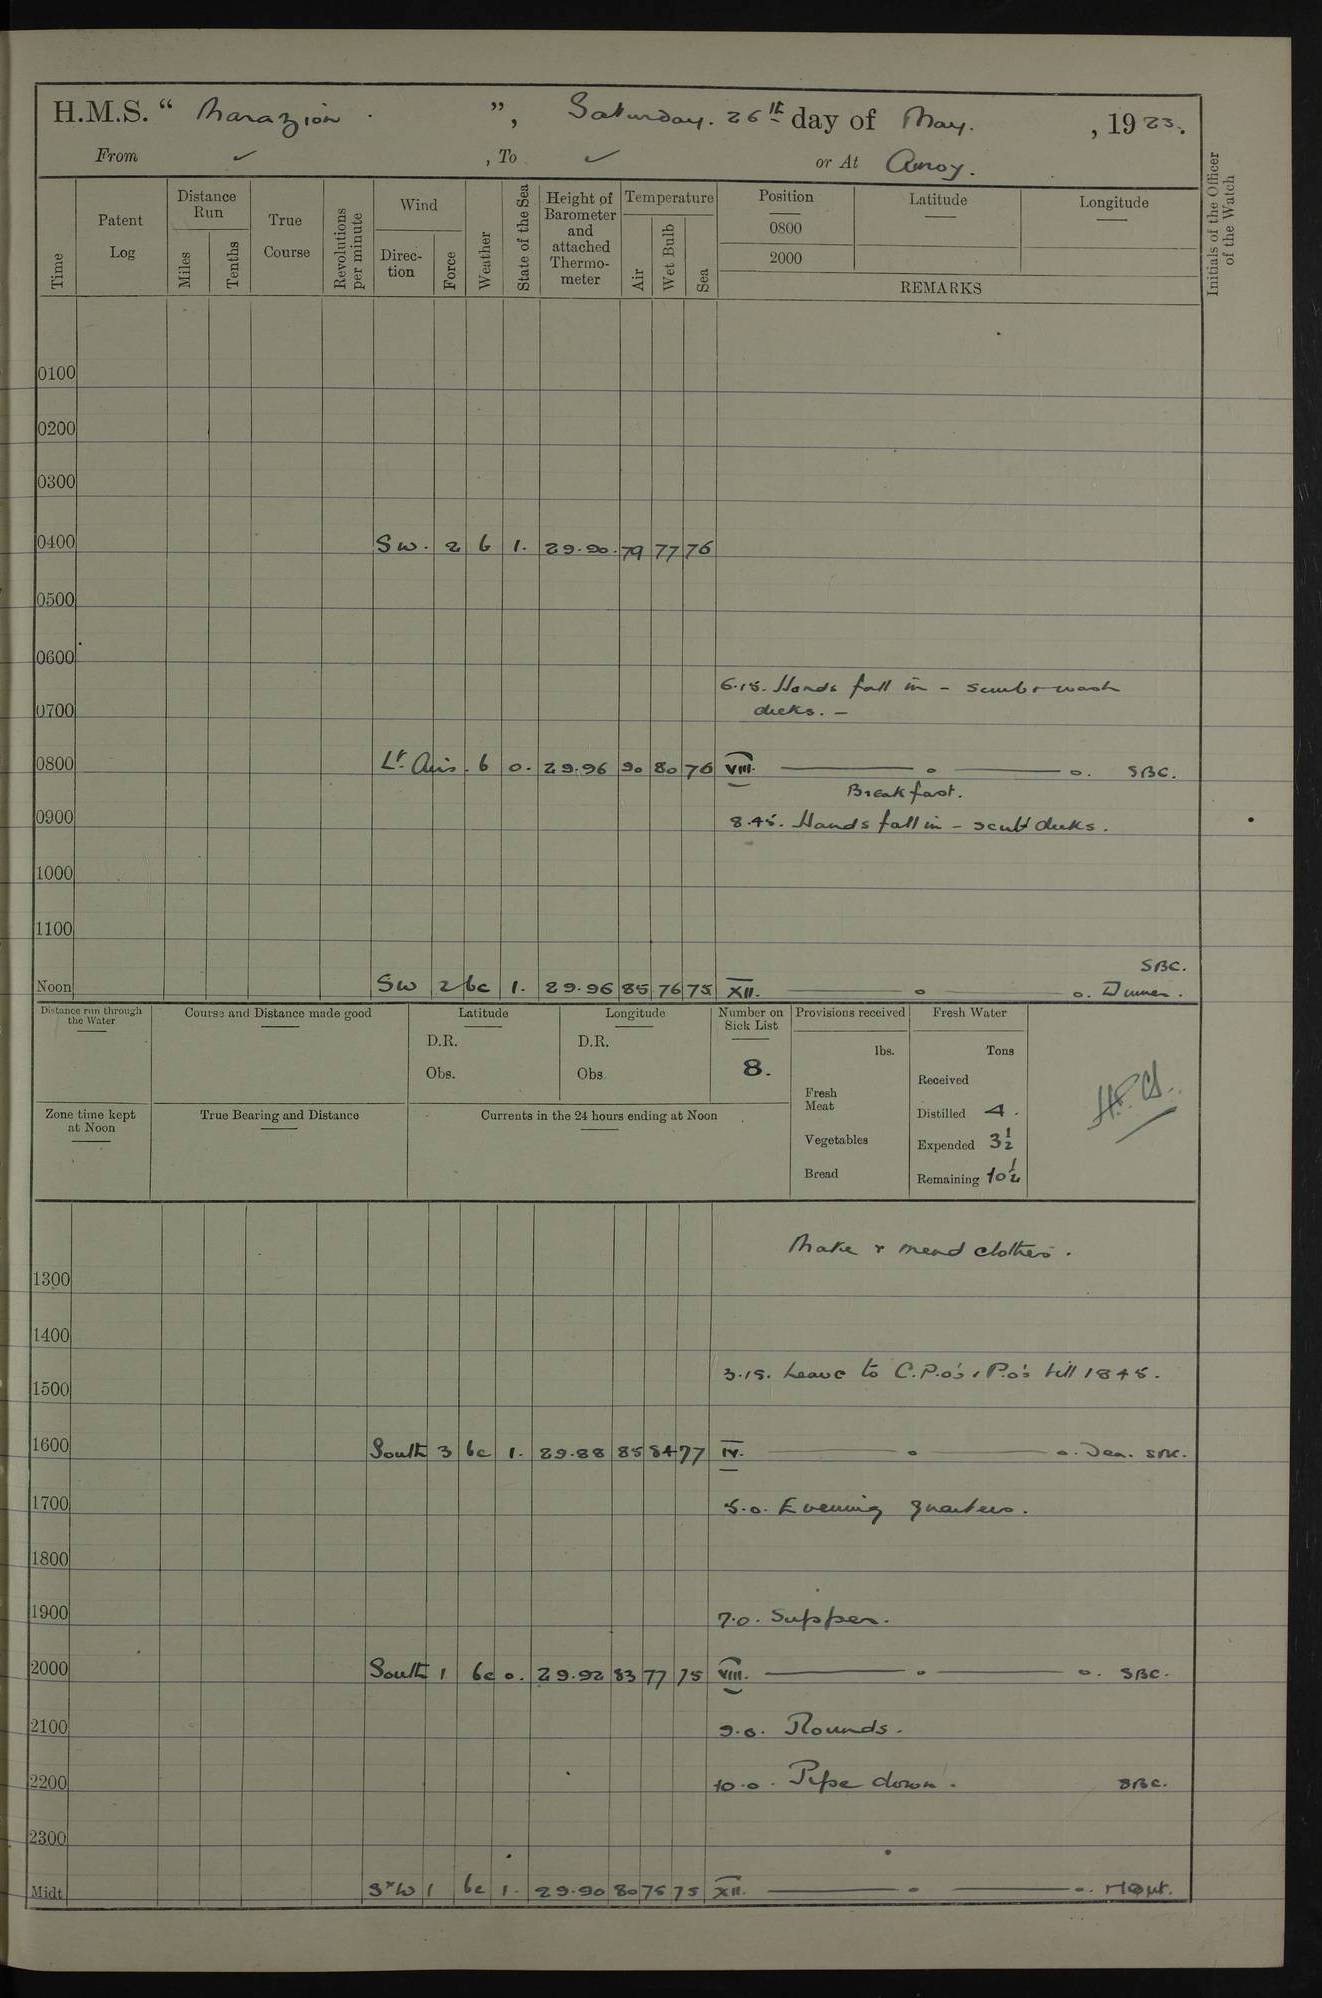 H.M.S. “ Marazion. ”, Saturday. 26th day of May. , 1923.
From ✓ , To ✓ or At Amoy.
Time
Patent Log
Distance Run
Miles
Tenths
True Course
Revolutions per minute
Wind
Direction
Force
Weather
State of the Sea
Height of Barometer and attached Thermometer
Temperature
Air
Wet Bulb
Sea
Position
0800
2000
Latitude
Longitude
REMARKS
Initials of the Officer of the Watch
0100
0200
0300
0400 SW. 2 b 1. 29.90. 79 77 76
0500
0600
6.15. Hands fall in - scrub & wash
0700 decks. -
0800 Lt. Airs. b 0. 29.96 90 80 76 VIII. o o. SBC.
Breakfast.
0900 8.45. Hands fall in - scrub decks.
1000
1100
SBC.
Noon SW 2 bc 1. 29.96 85 76 75 XII. o o. Dinner.
Distance run through the Water
Course and Distance made good
Latitude
D.R.
Obs.
Longitude
D.R.
Obs
Number on Sick List
8.
Provisions received
lbs.
Fresh Meat
Vegetables
Bread
Fresh Water
Tons
Received
Distilled 4.
Expended 3½
Remaining 10½
Zone time kept at Noon
True Bearing and Distance
Currents in the 24 hours ending at Noon
Make & mend clothes.
1300
1400
3.15. Leave to C.P.O's & P.O's till 1845.
1500
1600 South 3 bc 1. 29.88 85 84 77 IV. o o. Tea. SBC.
1700 5.0. Evening quarters.
1800
1900 7.0. Supper.
2000 South 1 bc 0. 29.92 83 77 75 VIII. o o. SBC.
2100 9.0. Rounds.
2200 10.0. Pipe down. SBC.
2300
Midt SxW 1 bc 1. 29.90 80 75 75 XII. o o.